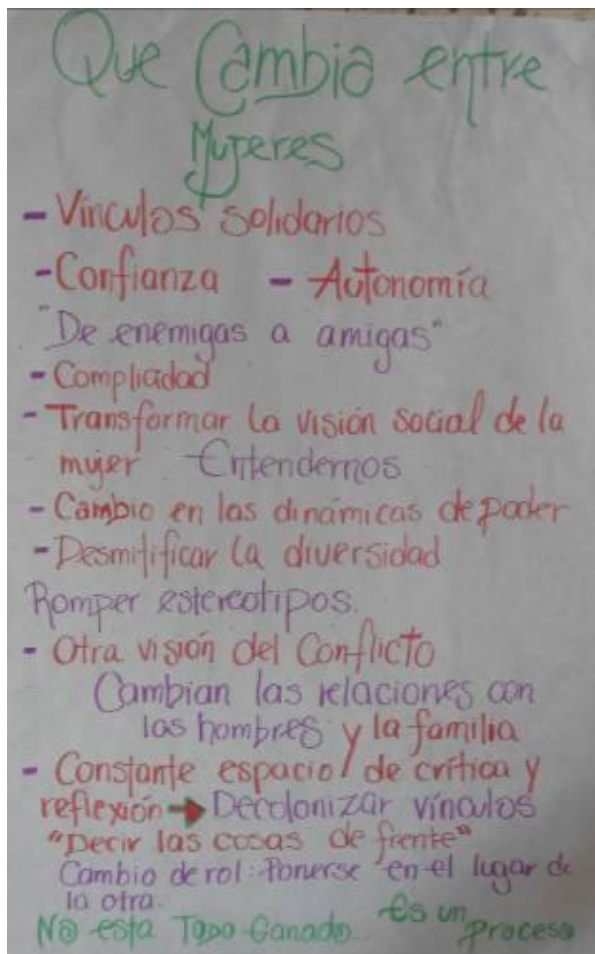 Que Cambia entre
Mujeres
- Vínculos solidarios
- Confianza - Autonomía
"De enemigas a amigas"
- Complicidad
- Transformar la visión social de la
mujer Entendernos
- Cambio en las dinámicas de poder
- Desmitificar la diversidad
Romper estereotipos.
- Otra visión del Conflicto
Cambian las relaciones con
los hombres y la familia
- Constante espacio de crítica y
reflexión → Decolonizar vínculos
"Decir las cosas de frente"
Cambio de rol: Ponerse en el lugar de
la otra.
No esta Todo Ganado... Es un proceso